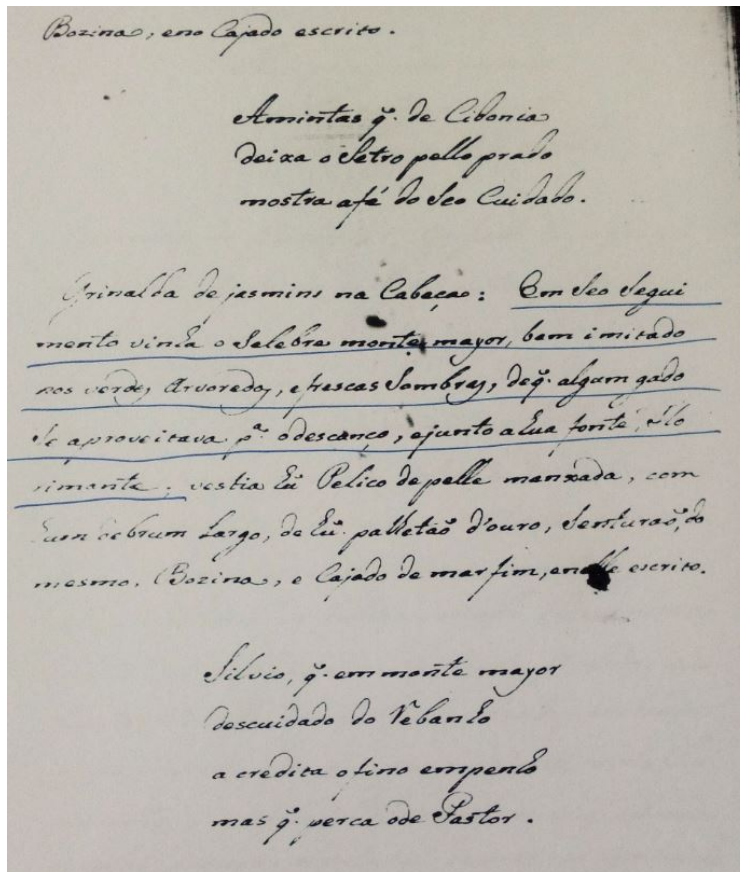 Bozina, eno Cajado escrito.
Amintas q̃. de Cibonia
deixa o Setro pello prado
mostra afé do Seo Cuidado.
Grinalda de jasmins na Cabeça: Em Seo Segui
mento vinha o Selebre monte mayor, bem imitado
nos verdes Arvoredos, e frescas Sombras, deq̃. algum gado
Se aproveitava pª. odescanço, ejunto a hua fonte,
vestia hũ Pelico de pelle manxada, com
hum debrum Largo, de hũ palhetaõ d'ouro, Senturaõ, do
mesmo, Bozina, e Cajado de marfim, enelle escrito.
Silvio, q̃. em monte mayor
descuidado do Rebanho
a credita o fino empenho
mas q̃. perca ode Pastor.